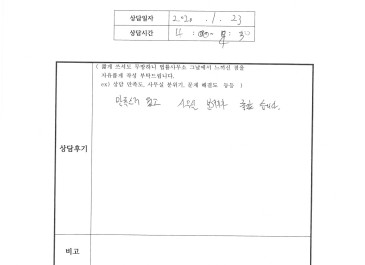 상담일자 2020. 1. 23
상담시간
( 짧게 쓰셔도 무방하니 법률사무소 그날에서 느끼신 점을
자유롭게 작성 부탁드립니다.
ex) 상담 만족도, 사무실 분위기, 문제 해결도 등등 )
상담후기
만족스러 웠고 사무실 분위기가 좋았 습니다.
비고